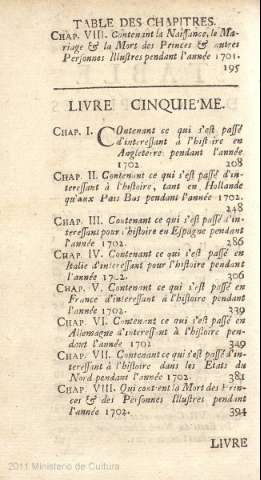 TABLE DES CHAPITRES.
CHAP. VIII. Contenant la Naissance, le Ma-
riage & la Mort des Princes & autres
Personnes Illustres pendant l'année 1701.
195
LIVRE CINQUIE'ME.
CHAP. I. COntenant ce qui s'est passé
d'interessant à l'histoire en
Angleterre pendant l'année
1702 208
CHAP. II. Contenant ce qui s'est passé d'in-
teressant à l'histoire, tant en Hollande
qu'aux Païs Bas pendant l'année 1702.
248
CHAP. III. Contenant ce qui s'est passé d'in-
teressant pour l'histoire en Espagne pendant
l'année 1702. 286
CHAP. IV. Contenant ce qui s'est passé en
Italie d'interessant pour l'histoire pendant
l'année 1702. 306
CHAP. V. Contenant ce qui s'est passé en
France d'interessant à l'histoire pendant
l'année 1702. 339
CHAP. VI. Contenant ce qui s'est passé en
Allemagne d'interessant à l'histoire pen-
dant l'année 1702 349
CHAP. VII. Contenant ce qui s'est passé d'in-
teressant à l'histoire dans les Etats du
Nord pendant l'année 1702. 381
CHAP. VIII. Qui contient la Mort des Prin-
ces & des Personnes Illustres pendant
l'année 1702. 394
LIVRE
2011 Ministerio de Cultura